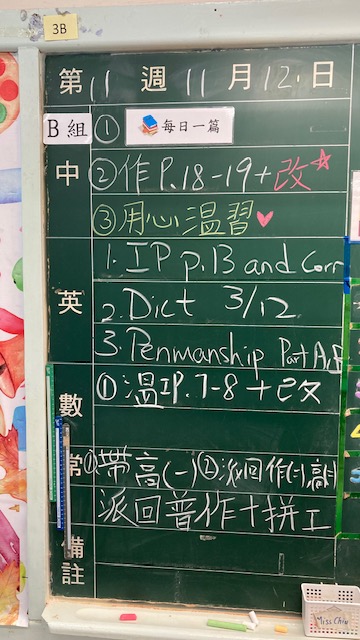 3B
第 11 週 11 月 12 日
B組 ① 每日一篇
中 ②作 P.18-19+改☆
③用心溫習♥
1. IP p.13 and Corr
英 2. Dict 3/12
3. Penmanship Part A,B
數 ①溫IP.7-8+改
常 ①帶高(一)②派回作(二)
派回普作+拼工
備註
Miss Chiu